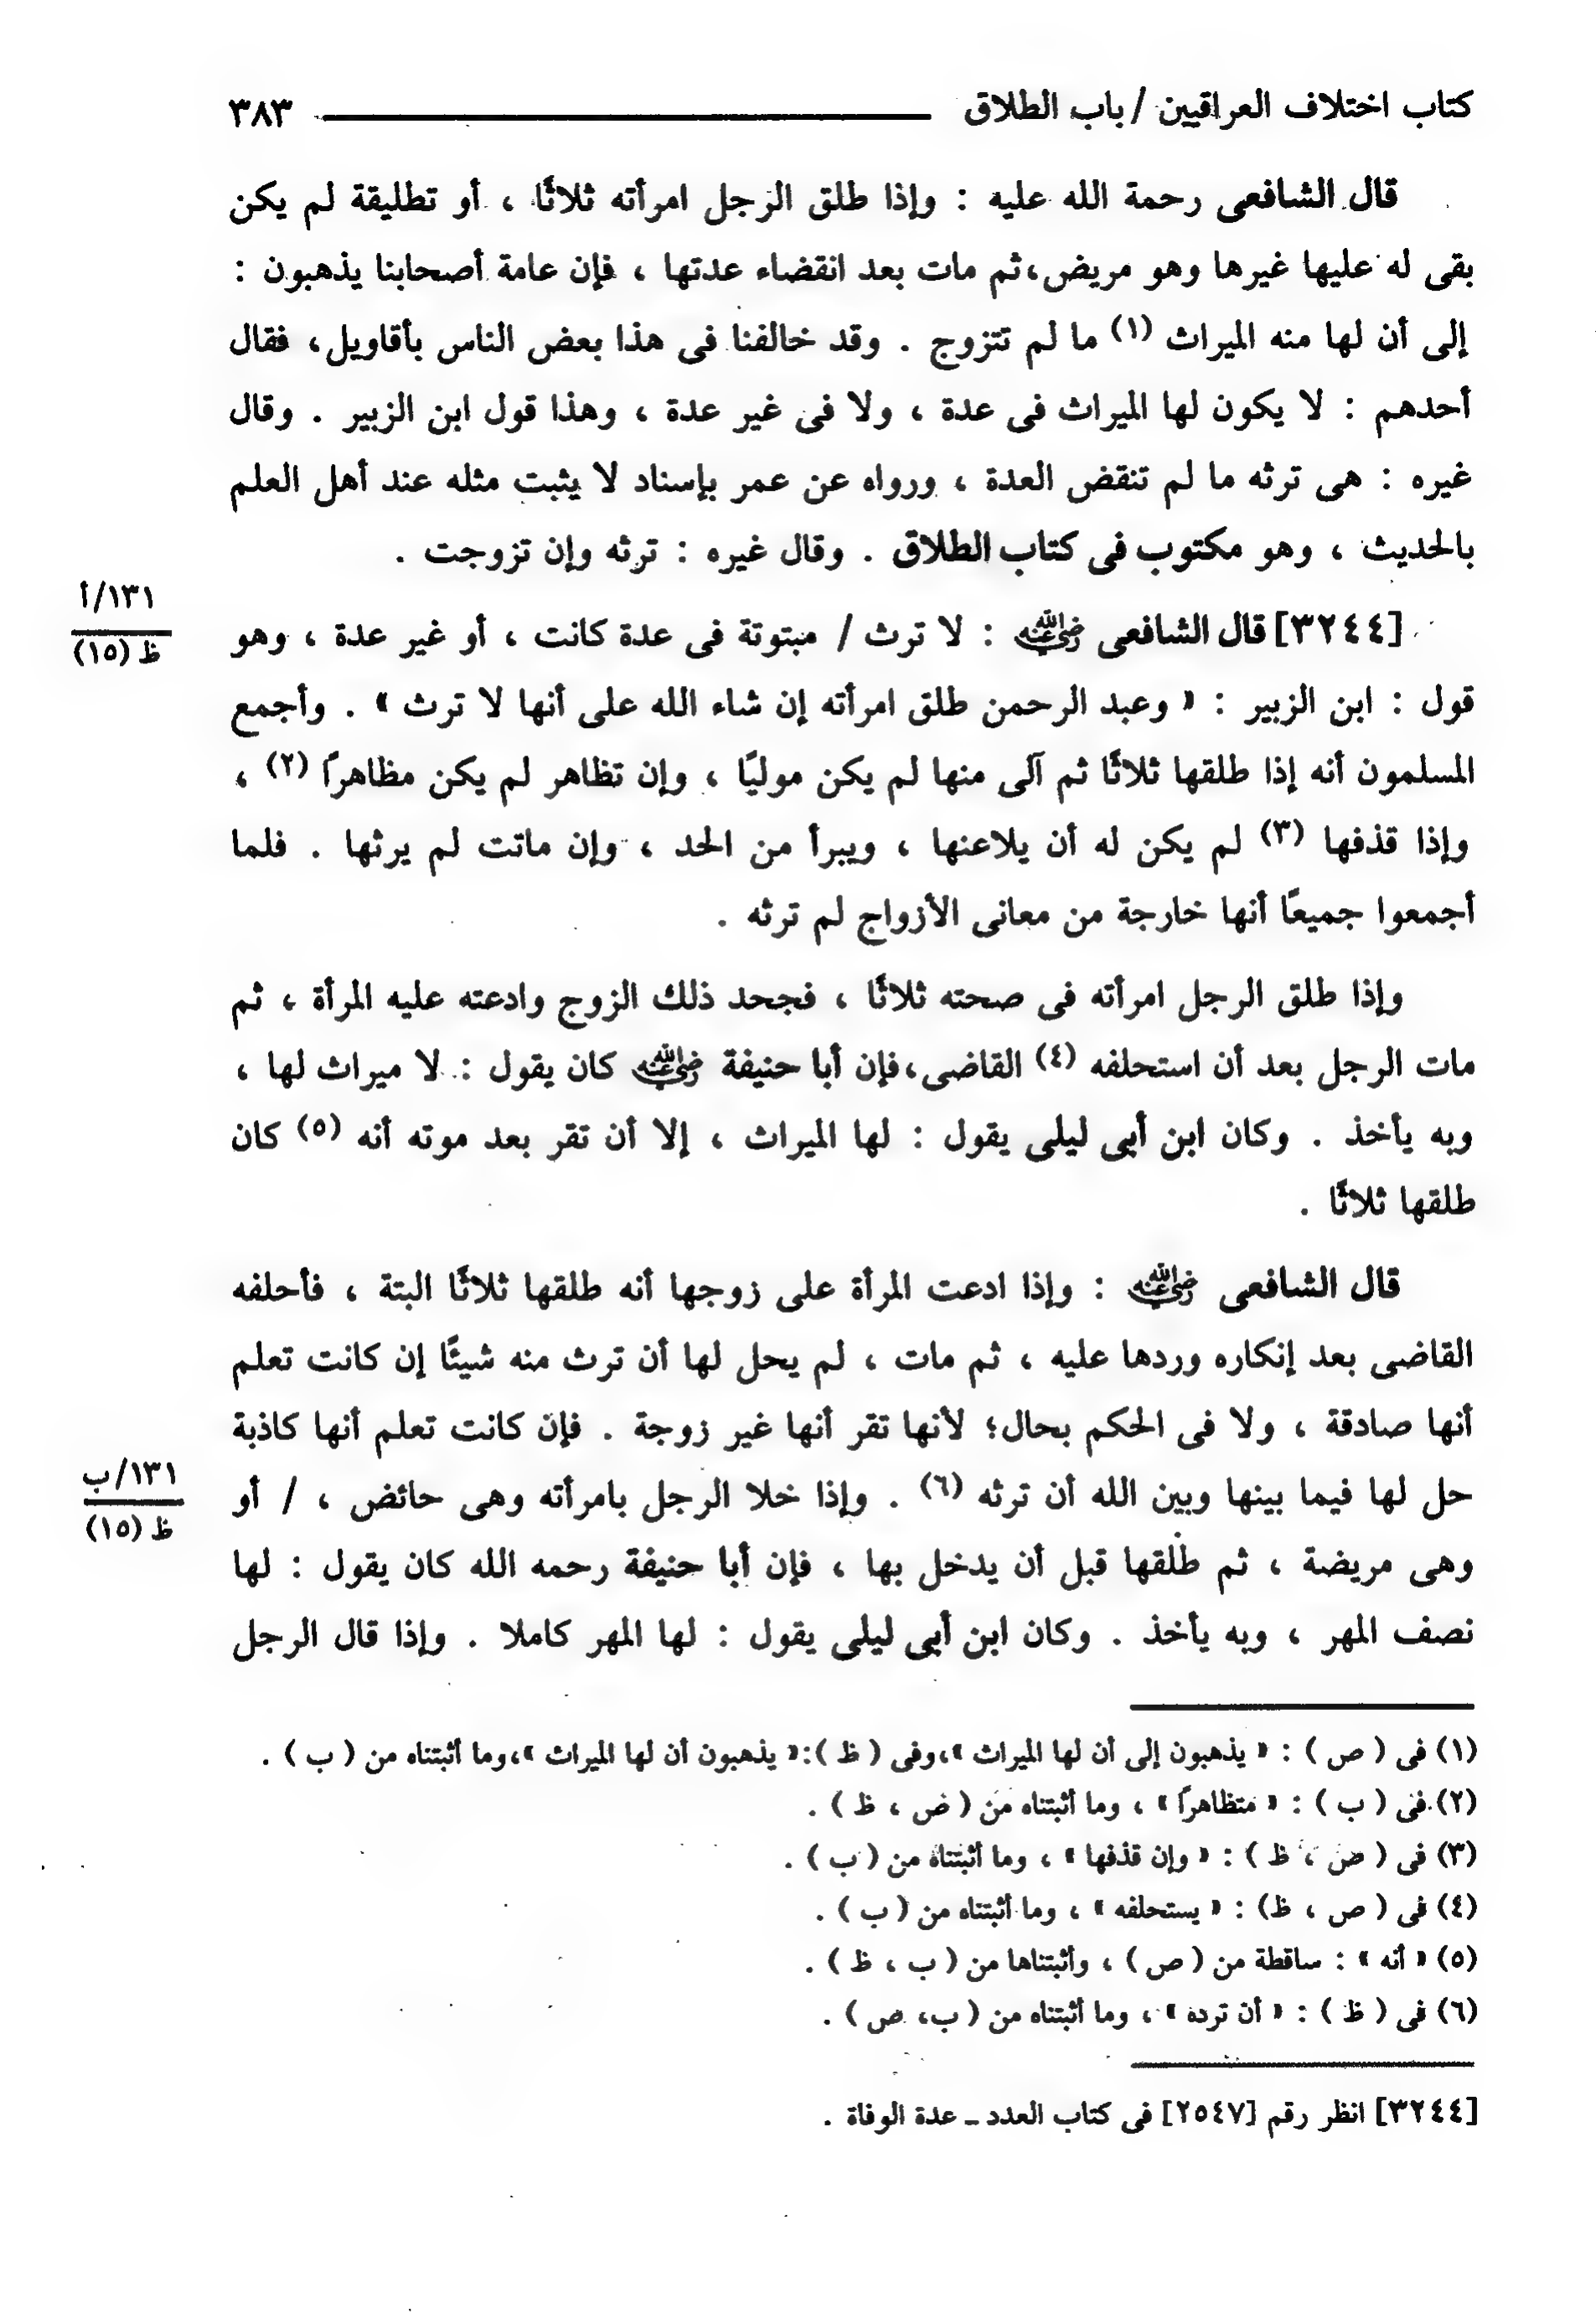 كتاب اختلاف العراقيين / باب الطلاق ٣٨٣
قال الشافعى رحمة الله عليه : وإذا طلق الرجل امرأته ثلاثًا ، أو تطليقة لم يكن
بقى له عليها غيرها وهو مريض،ثم مات بعد انقضاء عدتها ، فإن عامة أصحابنا يذهبون :
إلى أن لها منه الميراث (١) ما لم تتزوج . وقد خالفنا فى هذا بعض الناس بأقاويل، فقال
أحدهم : لا يكون لها الميراث فى عدة ، ولا فى غير عدة ، وهذا قول ابن الزبير . وقال
غيره : هى ترثه ما لم تنقض العدة ، ورواه عن عمر بإسناد لا يثبت مثله عند أهل العلم
بالحديث ، وهو مكتوب فى كتاب الطلاق . وقال غيره : ترثه وإن تزوجت .
١٣١/أ
ظ (١٥)
[٣٢٤٤] قال الشافعى رضي الله عنه : لا ترث / مبتوتة فى عدة كانت ، أو غير عدة ، وهو
قول : ابن الزبير : « وعبد الرحمن طلق امرأته إن شاء الله على أنها لا ترث » . وأجمع
المسلمون أنه إذا طلقها ثلاثًا ثم آلى منها لم يكن موليًا ، وإن تظاهر لم يكن مظاهرًا (٢) ،
وإذا قذفها (٣) لم يكن له أن يلاعنها ، ويبرأ من الحد ، وإن ماتت لم يرثها . فلما
أجمعوا جميعًا أنها خارجة من معانى الأزواج لم ترثه .
وإذا طلق الرجل امرأته فى صحته ثلاثًا ، فجحد ذلك الزوج وادعته عليه المرأة ، ثم
مات الرجل بعد أن استحلفه (٤) القاضى،فإن أبا حنيفة رضي الله عنه كان يقول : لا ميراث لها ،
وبه يأخذ . وكان ابن أبى ليلى يقول : لها الميراث ، إلا أن تقر بعد موته أنه (٥) كان
طلقها ثلاثًا .
قال الشافعى رضي الله عنه : وإذا ادعت المرأة على زوجها أنه طلقها ثلاثًا البتة ، فأحلفه
القاضى بعد إنكاره وردها عليه ، ثم مات ، لم يحل لها أن ترث منه شيئًا إن كانت تعلم
أنها صادقة ، ولا فى الحكم بحال؛ لأنها تقر أنها غير زوجة . فإن كانت تعلم أنها كاذبة
حل لها فيما بينها وبين الله أن ترثه (٦) . وإذا خلا الرجل بامرأته وهى حائض ، / أو
١٣١/ب
ظ (١٥)
وهى مريضة ، ثم طلقها قبل أن يدخل بها ، فإن أبا حنيفة رحمه الله كان يقول : لها
نصف المهر ، وبه يأخذ . وكان ابن أبى ليلى يقول : لها المهر كاملا . وإذا قال الرجل
(١) فى ( ص ) : « يذهبون إلى أن لها الميراث »،وفى ( ظ ):« يذهبون أن لها الميراث »،وما أثبتناه من ( ب ) .
(٢) فى ( ب ) : « متظاهرًا » ، وما أثبتناه من ( ص ، ظ ) .
(٣) فى ( ص ، ظ ) : « وإن قذفها » ، وما أثبتناه من ( ب ) .
(٤) فى ( ص ، ظ) : « يستحلفه » ، وما أثبتناه من ( ب ) .
(٥) « أنه » : ساقطة من ( ص ) ، وأثبتناها من ( ب ، ظ ) .
(٦) فى ( ظ ) : « أن ترده » ، وما أثبتناه من ( ب، ص ) .
[٣٢٤٤] انظر رقم [٢٥٤٧] فى كتاب العدد ـ عدة الوفاة .